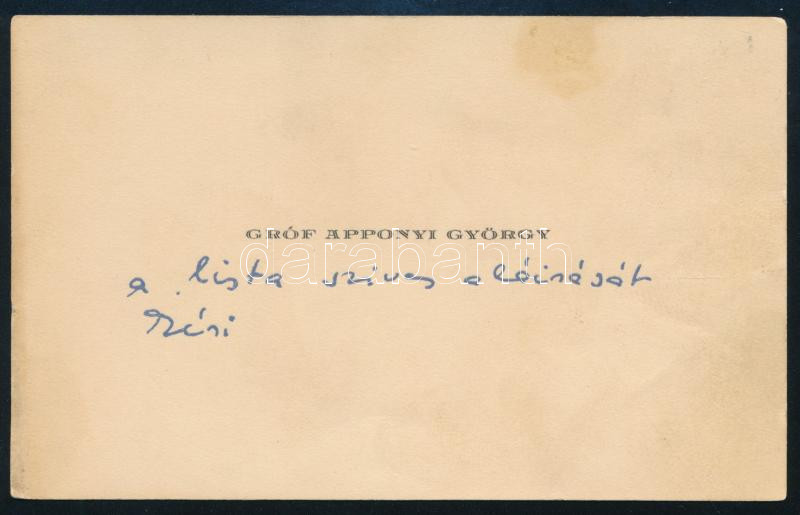 GRÓF APPONYI GYÖRGY
darabanth
a lista szíves aláirását
kéri